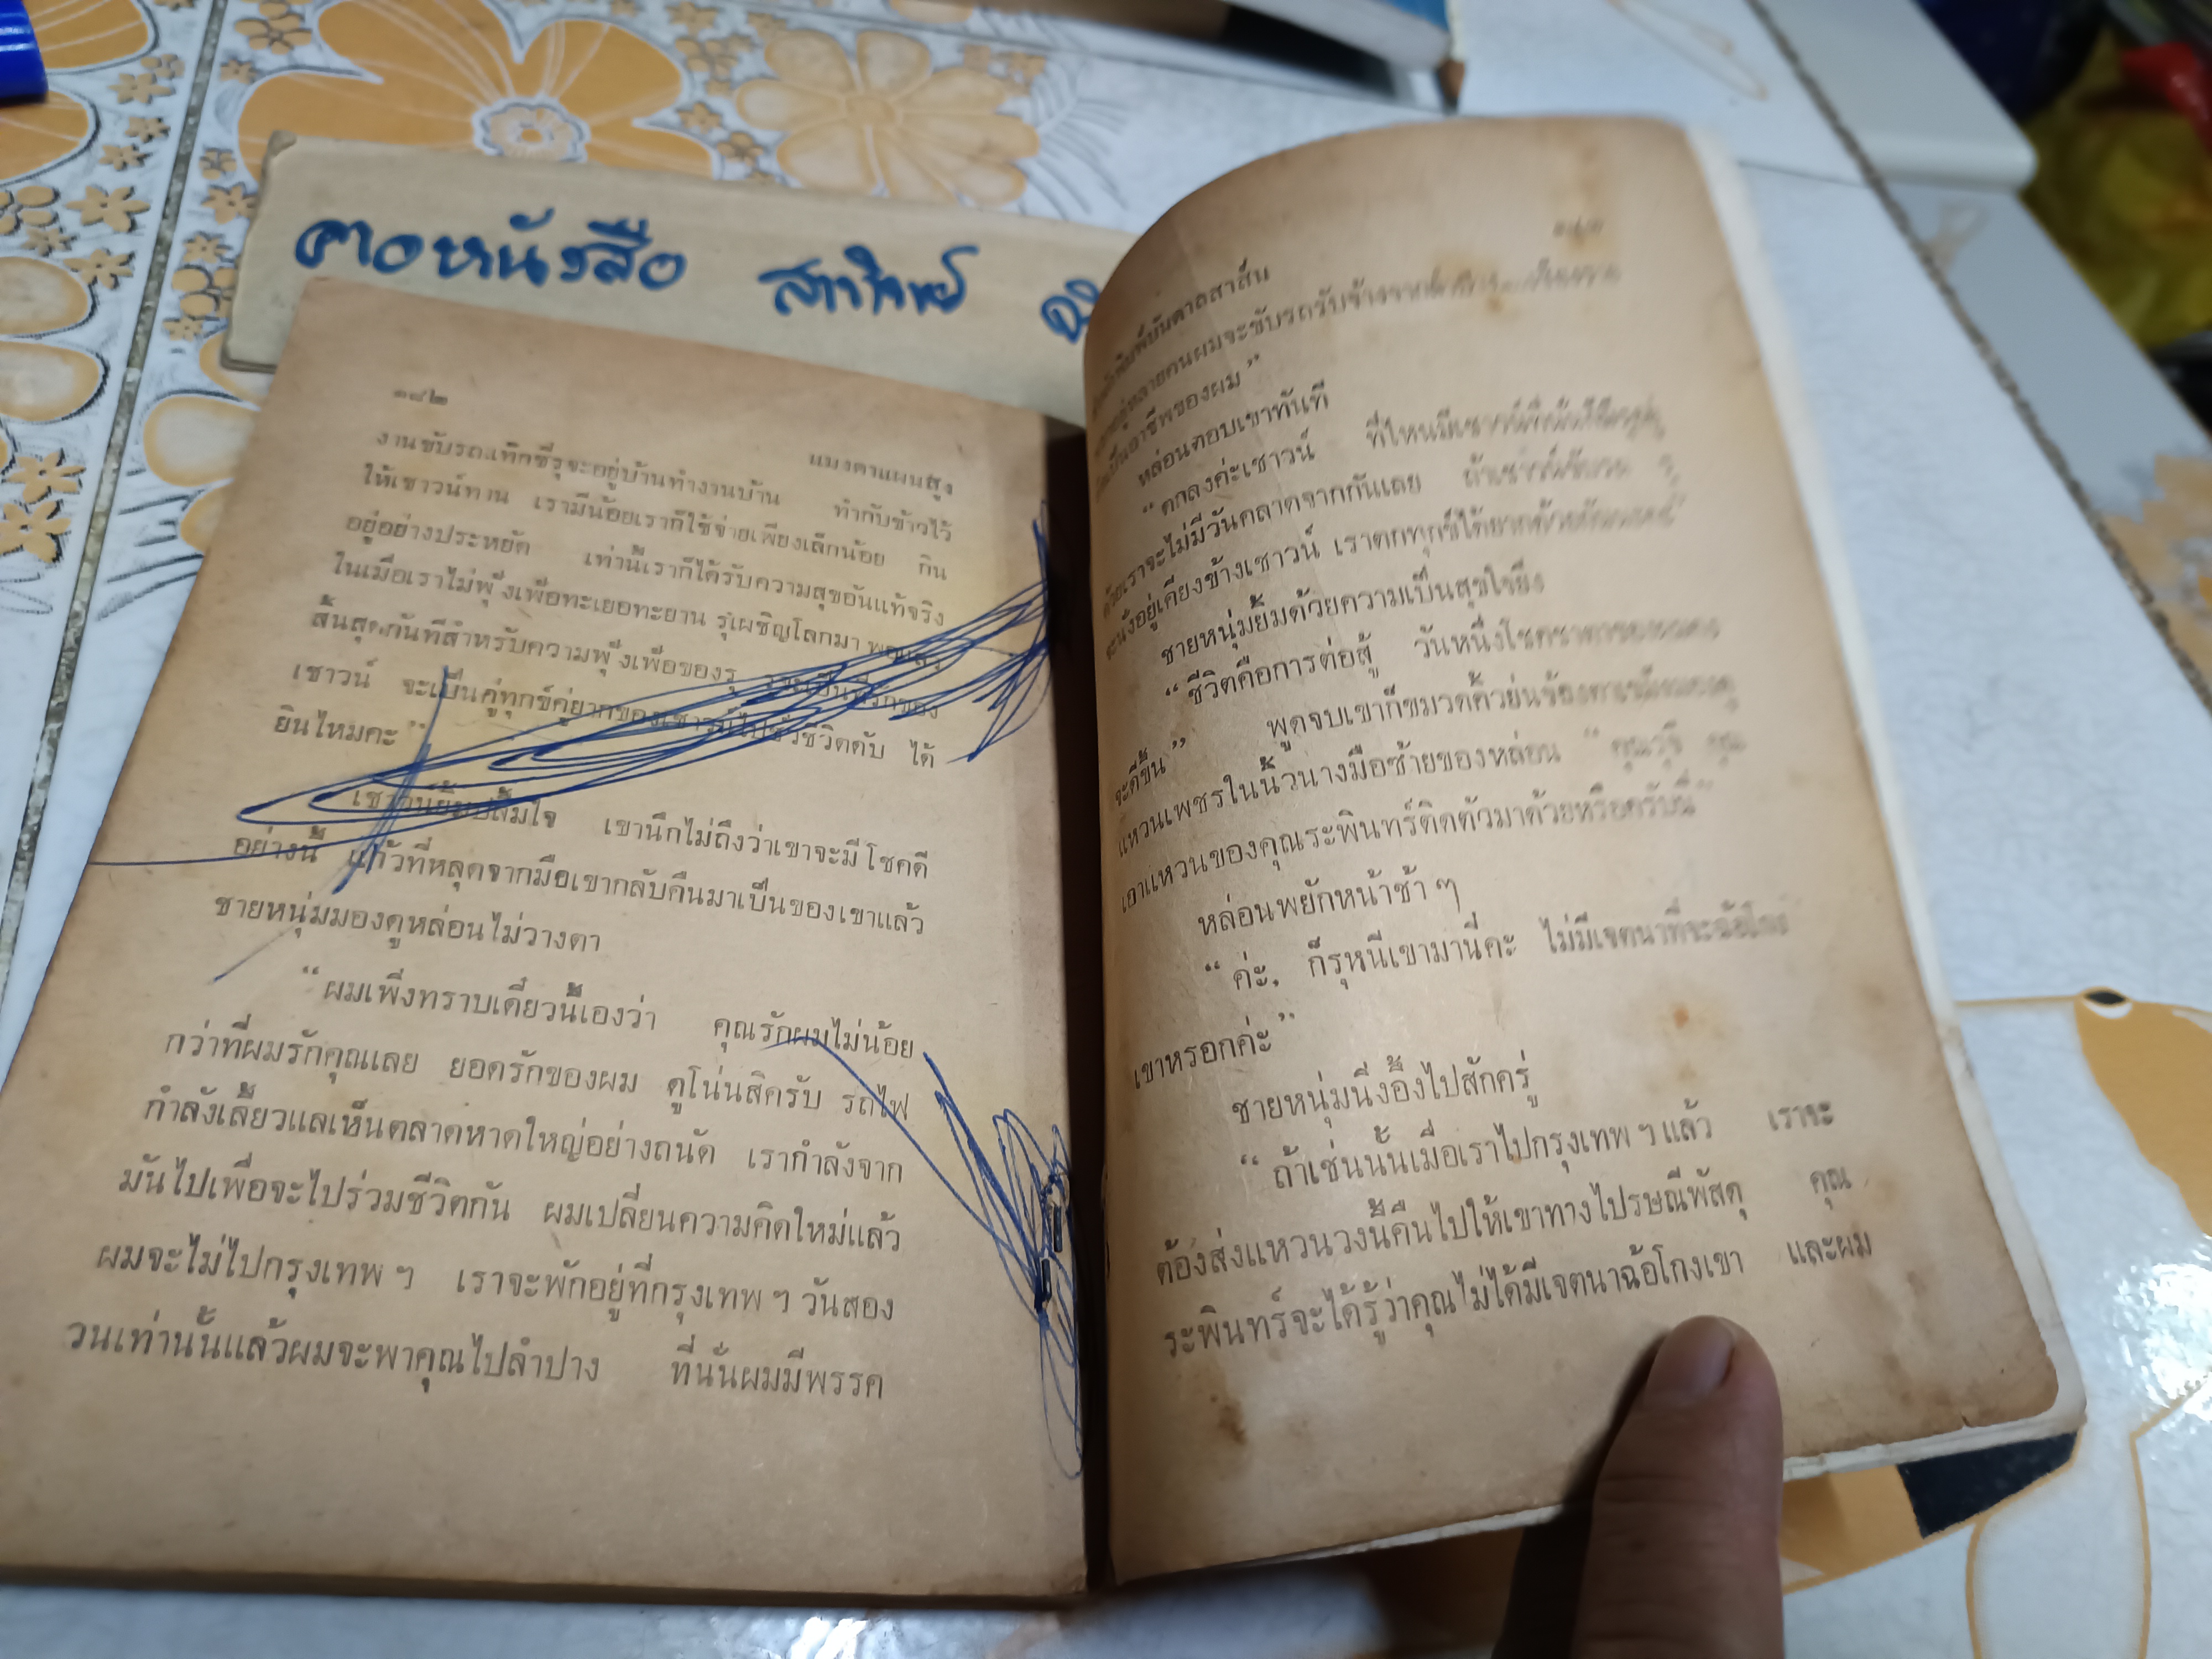 ตาอหนังสือ
๑๔๒
แมงดาแผนสูง
งานขับรถแท็กซี่รุจะอยู่บ้านทำงานบ้าน ทำกับข้าวไว้
ให้เชาวน์ทาน เรามีน้อยเราก็ใช้จ่ายเพียงเล็กน้อย กิน
อยู่อย่างประหยัด เท่านี้เราก็ได้รับความสุขอันแท้จริง
ในเมื่อเราไม่พุ่งเพ้อทะเยอทะยาน รุเผชิญโลกมา พอแล้ว
สิ้นสุดกันทีสำหรับความพุ่งเพ้อของรุ
เชาวน์ จะเป็นคู่ทุกข์คู่ยากของเชาวน์ไปชั่วชีวิตดับ ได้
ยินไหมคะ”
เชาวน์ยิ้มปลื้มใจ เขานึกไม่ถึงว่าเขาจะมีโชคดี
อย่างนี้ แก้วที่หลุดจากมือเขากลับคืนมาเป็นของเขาแล้ว
ชายหนุ่มมองดูหล่อนไม่วางตา
“ผมเพิ่งทราบเดี๋ยวนี้เองว่า คุณรักผมไม่น้อย
กว่าที่ผมรักคุณเลย ยอดรักของผม ดูโน่นสิครับ รถไฟ
กำลังเลี้ยวแลเห็นตลาดหาดใหญ่อย่างถนัด เรากำลังจาก
มันไปเพื่อจะไปร่วมชีวิตกัน ผมเปลี่ยนความคิดใหม่แล้ว
ผมจะไม่ไปกรุงเทพ ฯ เราจะพักอยู่ที่กรุงเทพ ฯ วันสอง
วันเท่านั้นแล้วผมจะพาคุณไปลำปาง ที่นั่นผมมีพรรค
๑๔๓
ผมจะขับรถรับจ้าง
เป็นอาชีพของผม”
หล่อนตอบเขาทันที
“ตกลงค่ะเชาวน์ ที่ไหนมีเชาวน์ที่นั่นก็มีรุ
ด้วยเราจะไม่มีวันคลาดจากกันเลย ถ้าเชาวน์ขับรถ รุ
จะนั่งอยู่เคียงข้างเชาวน์ เราตกทุกข์ได้ยากด้วยกัน
ชายหนุ่มยิ้มด้วยความเป็นสุขใจยิ่ง
“ชีวิตคือการต่อสู้ วันหนึ่งโชคชาตาของ
จะดีขึ้น” พูดจบเขาก็ขมวดคิ้วย่นจ้องตาเขม็งมองดู
แหวนเพชรในนิ้วนางมือซ้ายของหล่อน “คุณรุจี คุณ
เอาแหวนของคุณระพินทร์ติดตัวมาด้วยหรือครับนี่”
หล่อนพยักหน้าช้า ๆ
“ค่ะ, ก็รุหนีเขามานี่คะ ไม่มีเจตนาที่จะฉ้อโกง
เขาหรอกค่ะ”
ชายหนุ่มนิ่งอึ้งไปสักครู่
“ถ้าเช่นนั้นเมื่อเราไปกรุงเทพ ฯ แล้ว เราจะ
ต้องส่งแหวนวงนี้คืนไปให้เขาทางไปรษณีพัสดุ คุณ
ระพินทร์จะได้รู้ว่าคุณไม่ได้มีเจตนาฉ้อโกงเขา และผม